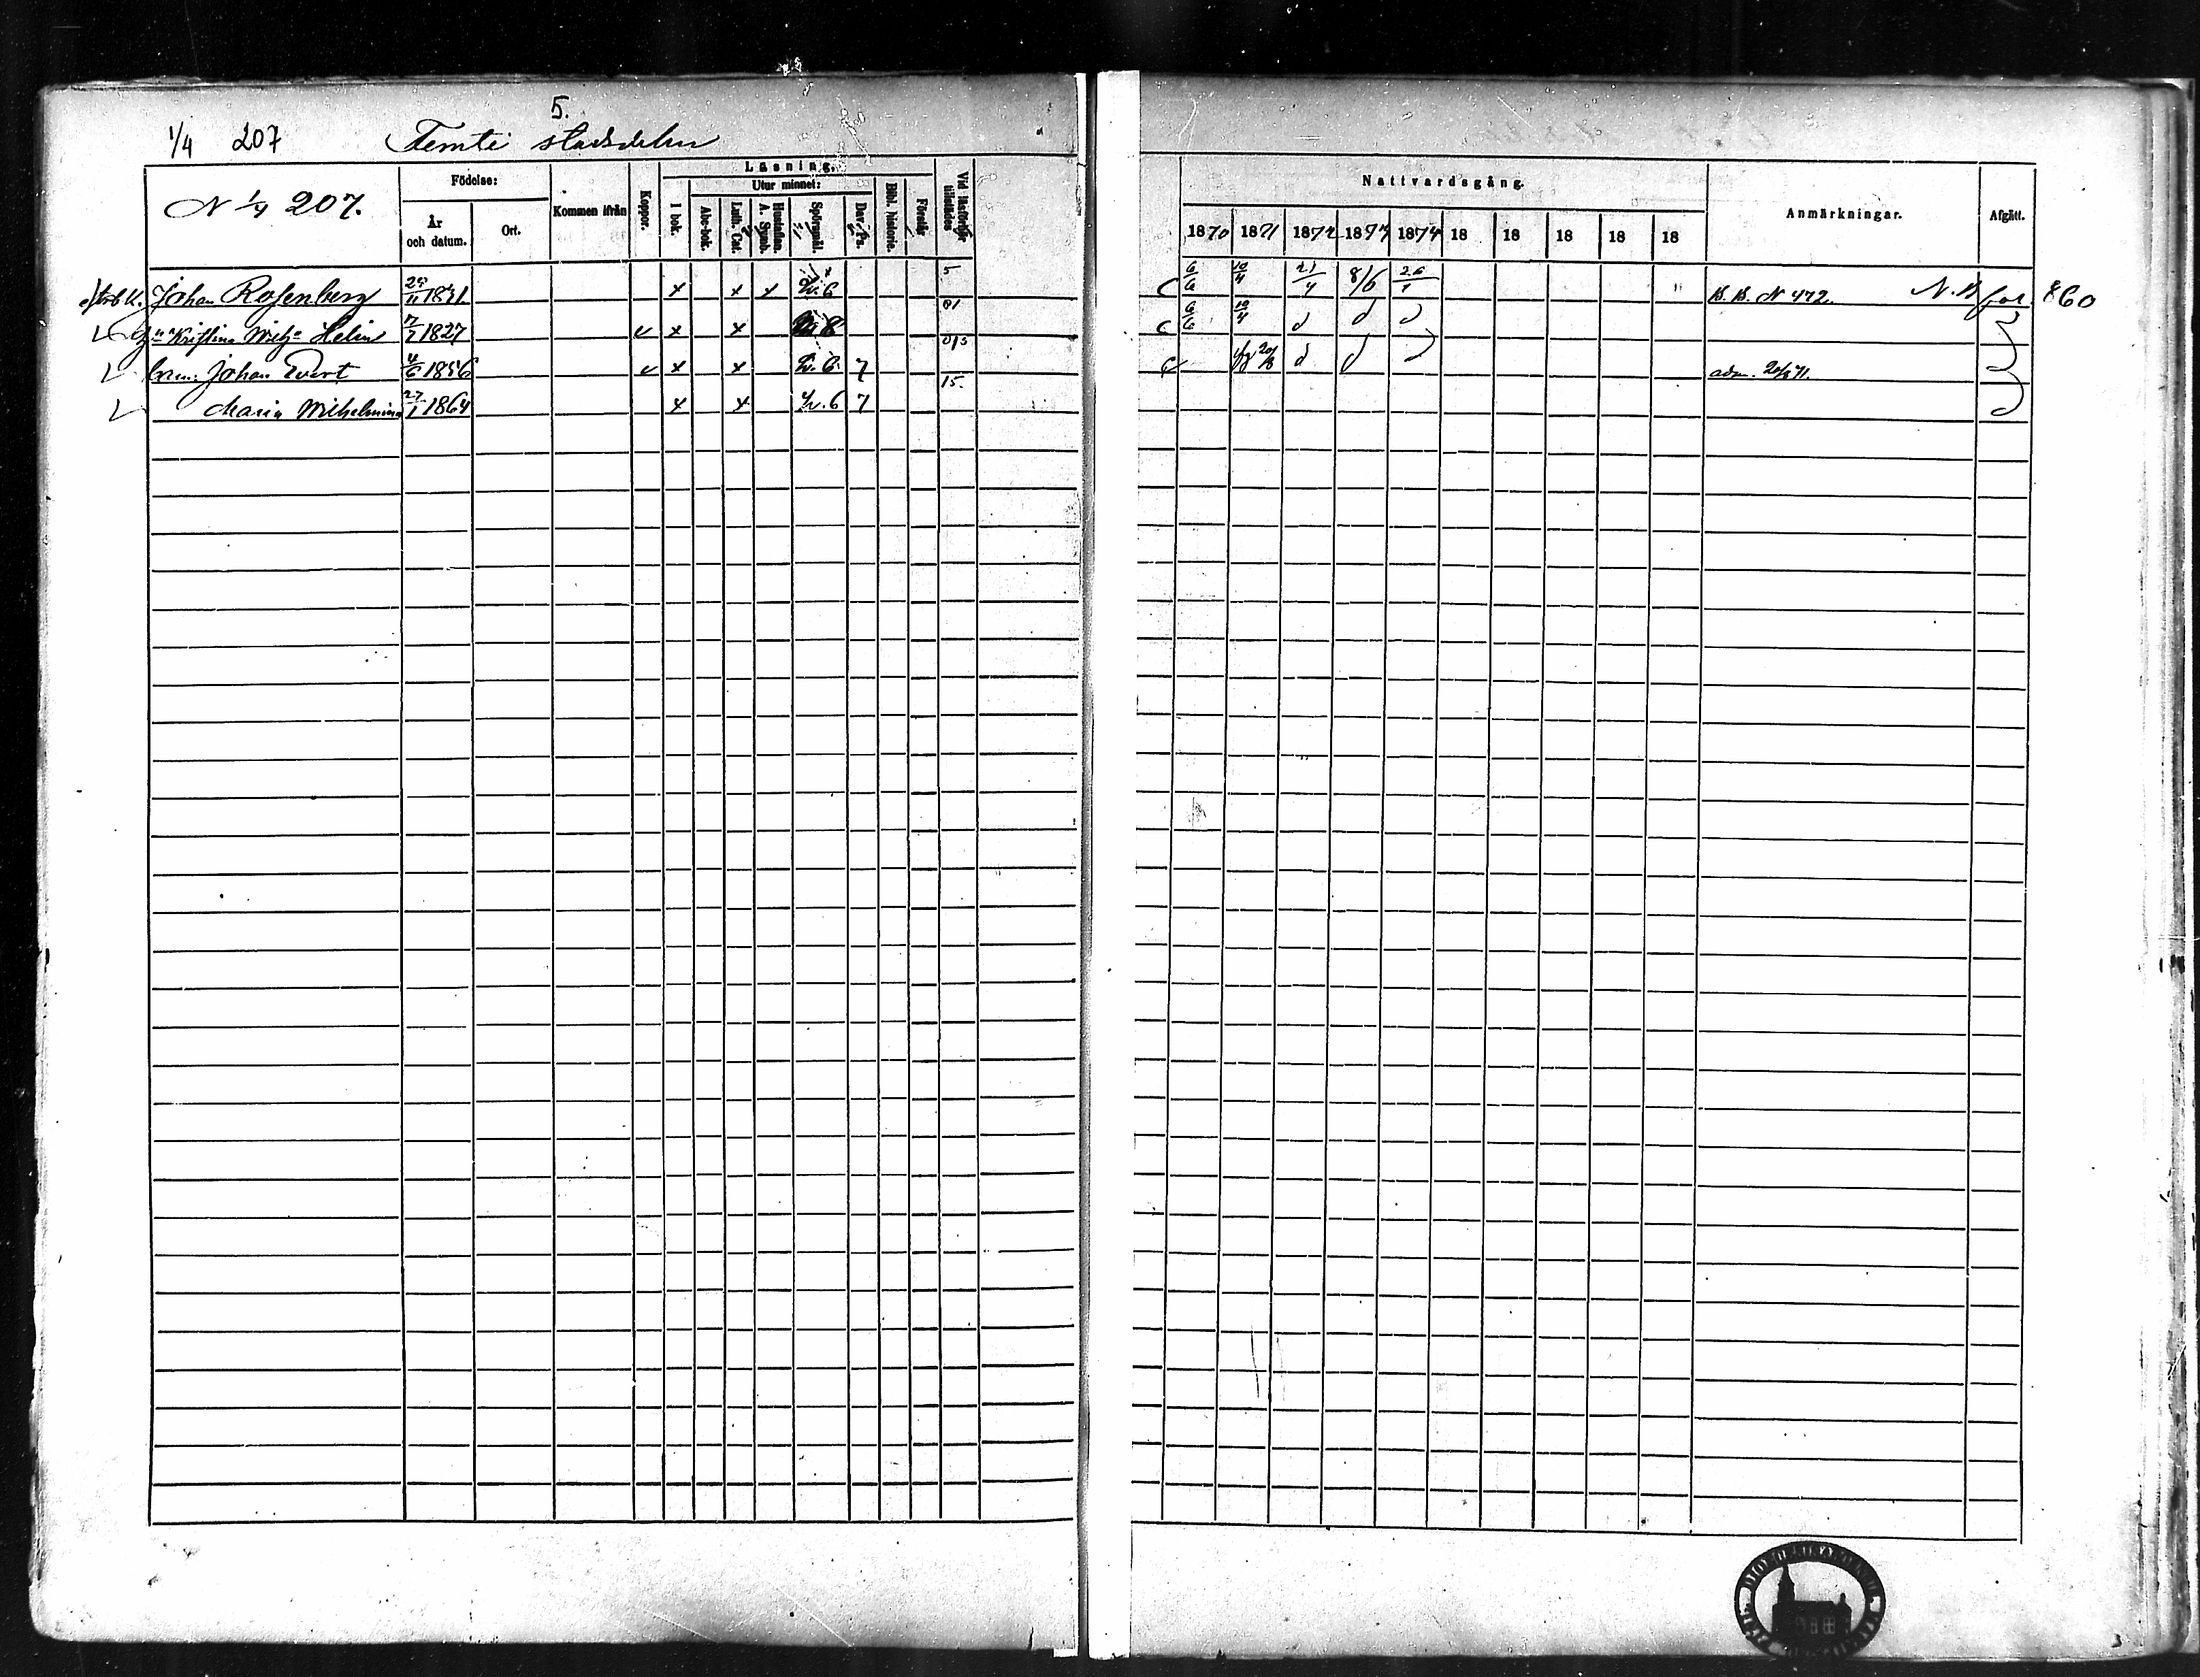 5.
1/4 207 Femte stadsdelen
N 1/4 207.
Födelse:
År och datum.
Ort.
Kommen ifrån
Koppor.
Läsning.
I bok.
Utur minnet:
Abc-bok.
Luth. Cat.
Hustaflan. A. Symb.
Spörsmål.
Dav. Ps.
Bibl. historie.
Förstår
Vid läsförhör tillstädes
Nattvardsgång.
1870 1871 1872 1873 1874 18 18 18 18 18
Anmärkningar.
Afgått.
Johan Rosenberg 11 18 x x x 6 5 C 6/6 10/4 21/4 8/6 B. B. N 472. N.B. fol. 860
Kristina Helin 7/7 1827 v x x 8 01 C 6/6 10/4
Johan Evert 4/6 1856 v x x 6 7 015 adm. 71.
Maria Wilhelmina 27/1 1864 x x 6 7 15.